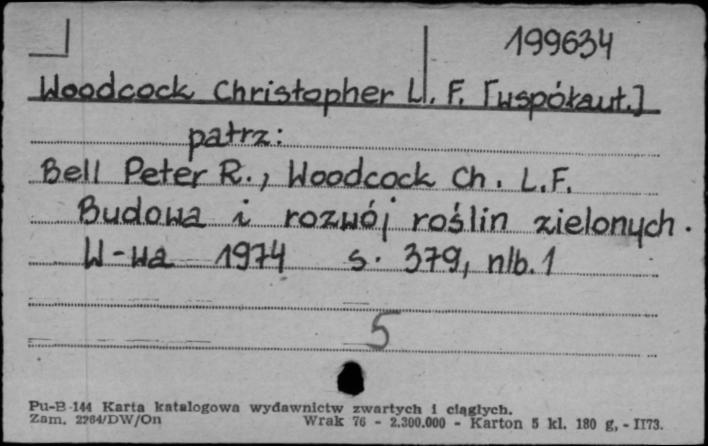 199634
Woodcock Christopher L. F. [współaut.]
patrz:
Bell Peter R., Woodcock Ch. L.F.
Budowa i rozwój roślin zielonych.
W-wa 1974 s. 379, nlb. 1
5
Pu-B-144 Karta katalogowa wydawnictw zwartych i ciągłych.
Zam. 2264/DW/On Wrak 76 - 2.300.000 - Karton 5 kl. 180 g, - II73.